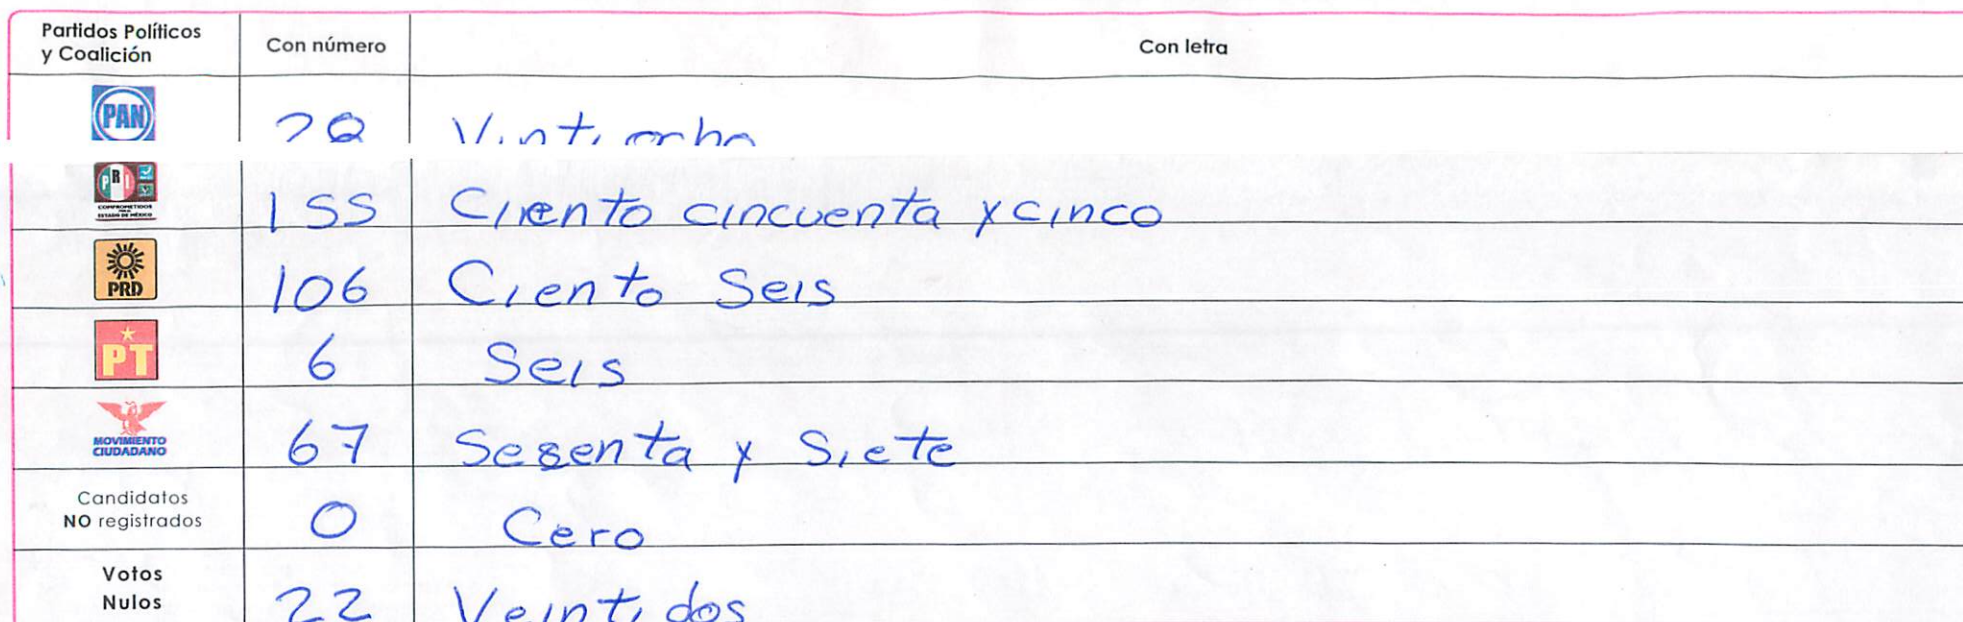 Partidos Políticos
y Coalición
Con número
Con letra
PAN
28 Vintiocho
PRI
COMPROMETIDOS
ESTADO DE MÉXICO
155 Ciento cincuenta y cinco
PRD
106 Ciento Seis
PT
6 Seis
MOVIMIENTO
CIUDADANO
67 Sesenta y Siete
Candidatos
NO registrados
0 Cero
Votos
Nulos
22 Veintidos